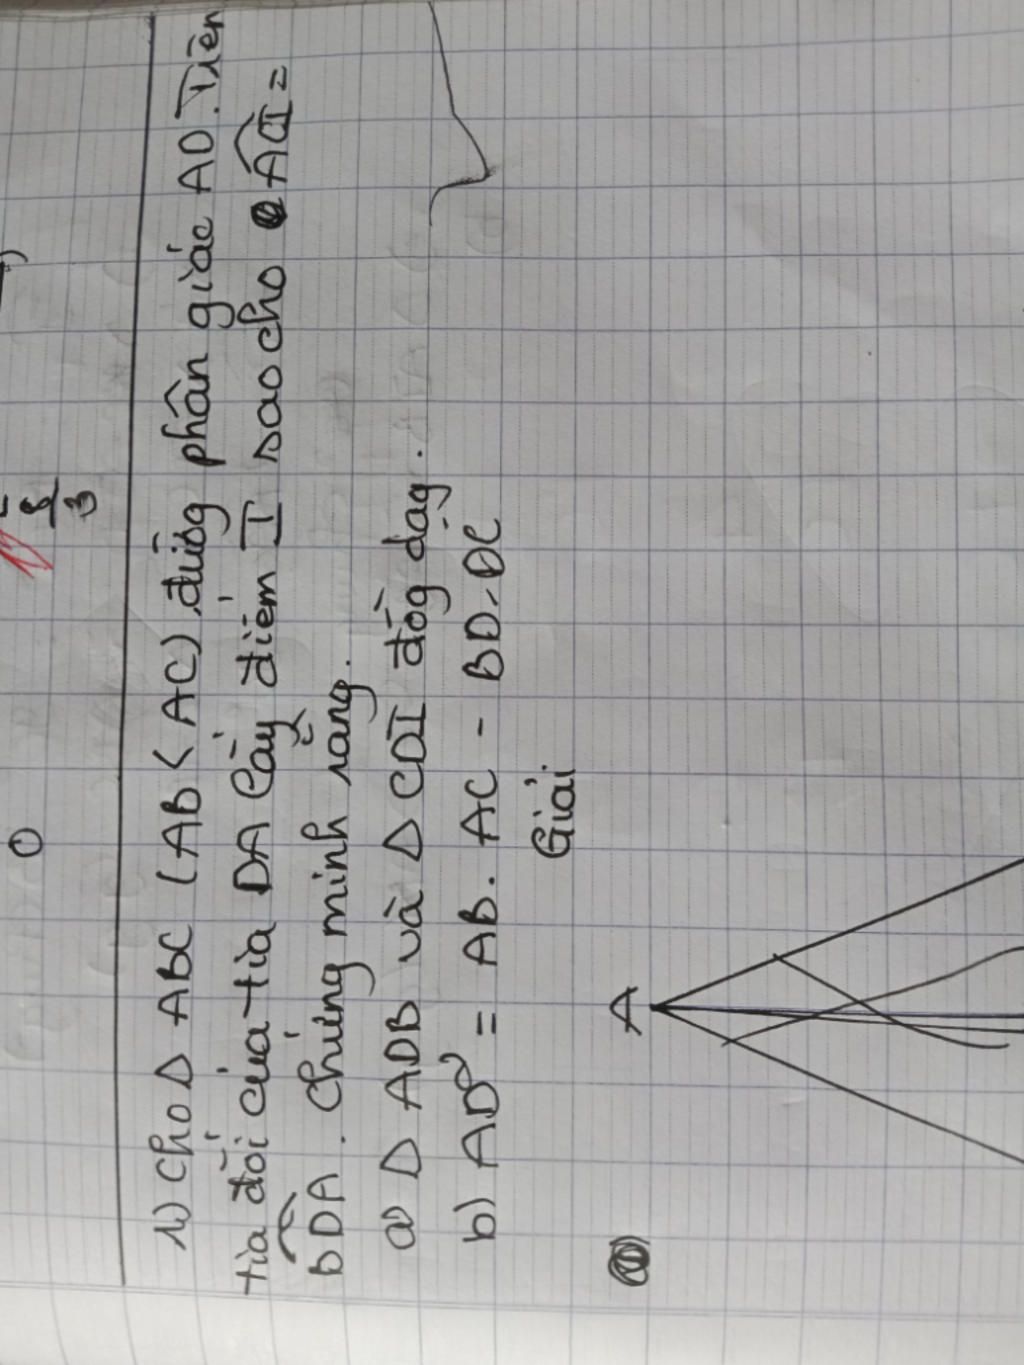 0
8
3
1) Cho Δ ABC (AB < AC), đường phân giác AD. Trên
tia đối của tia DA lấy điểm I sao cho ACI =
BDA. Chứng minh rằng.
a) Δ ADB và Δ CDI đồg dạg.
b) AD² = AB. AC - BD. DC
Giải
A